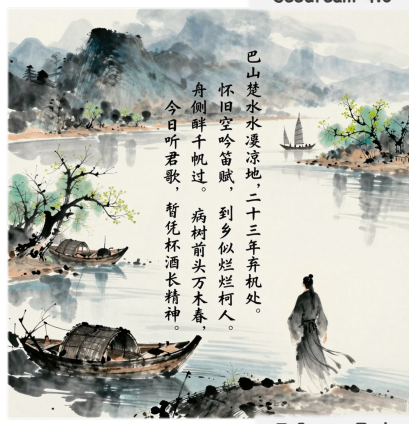 巴山楚水水凉地，二十三年弃机处。
怀旧空吟笛赋， 到乡似烂烂柯人。
舟侧千帆过。 病树前头万木春，
今日听君歌， 暂凭杯酒长精神。